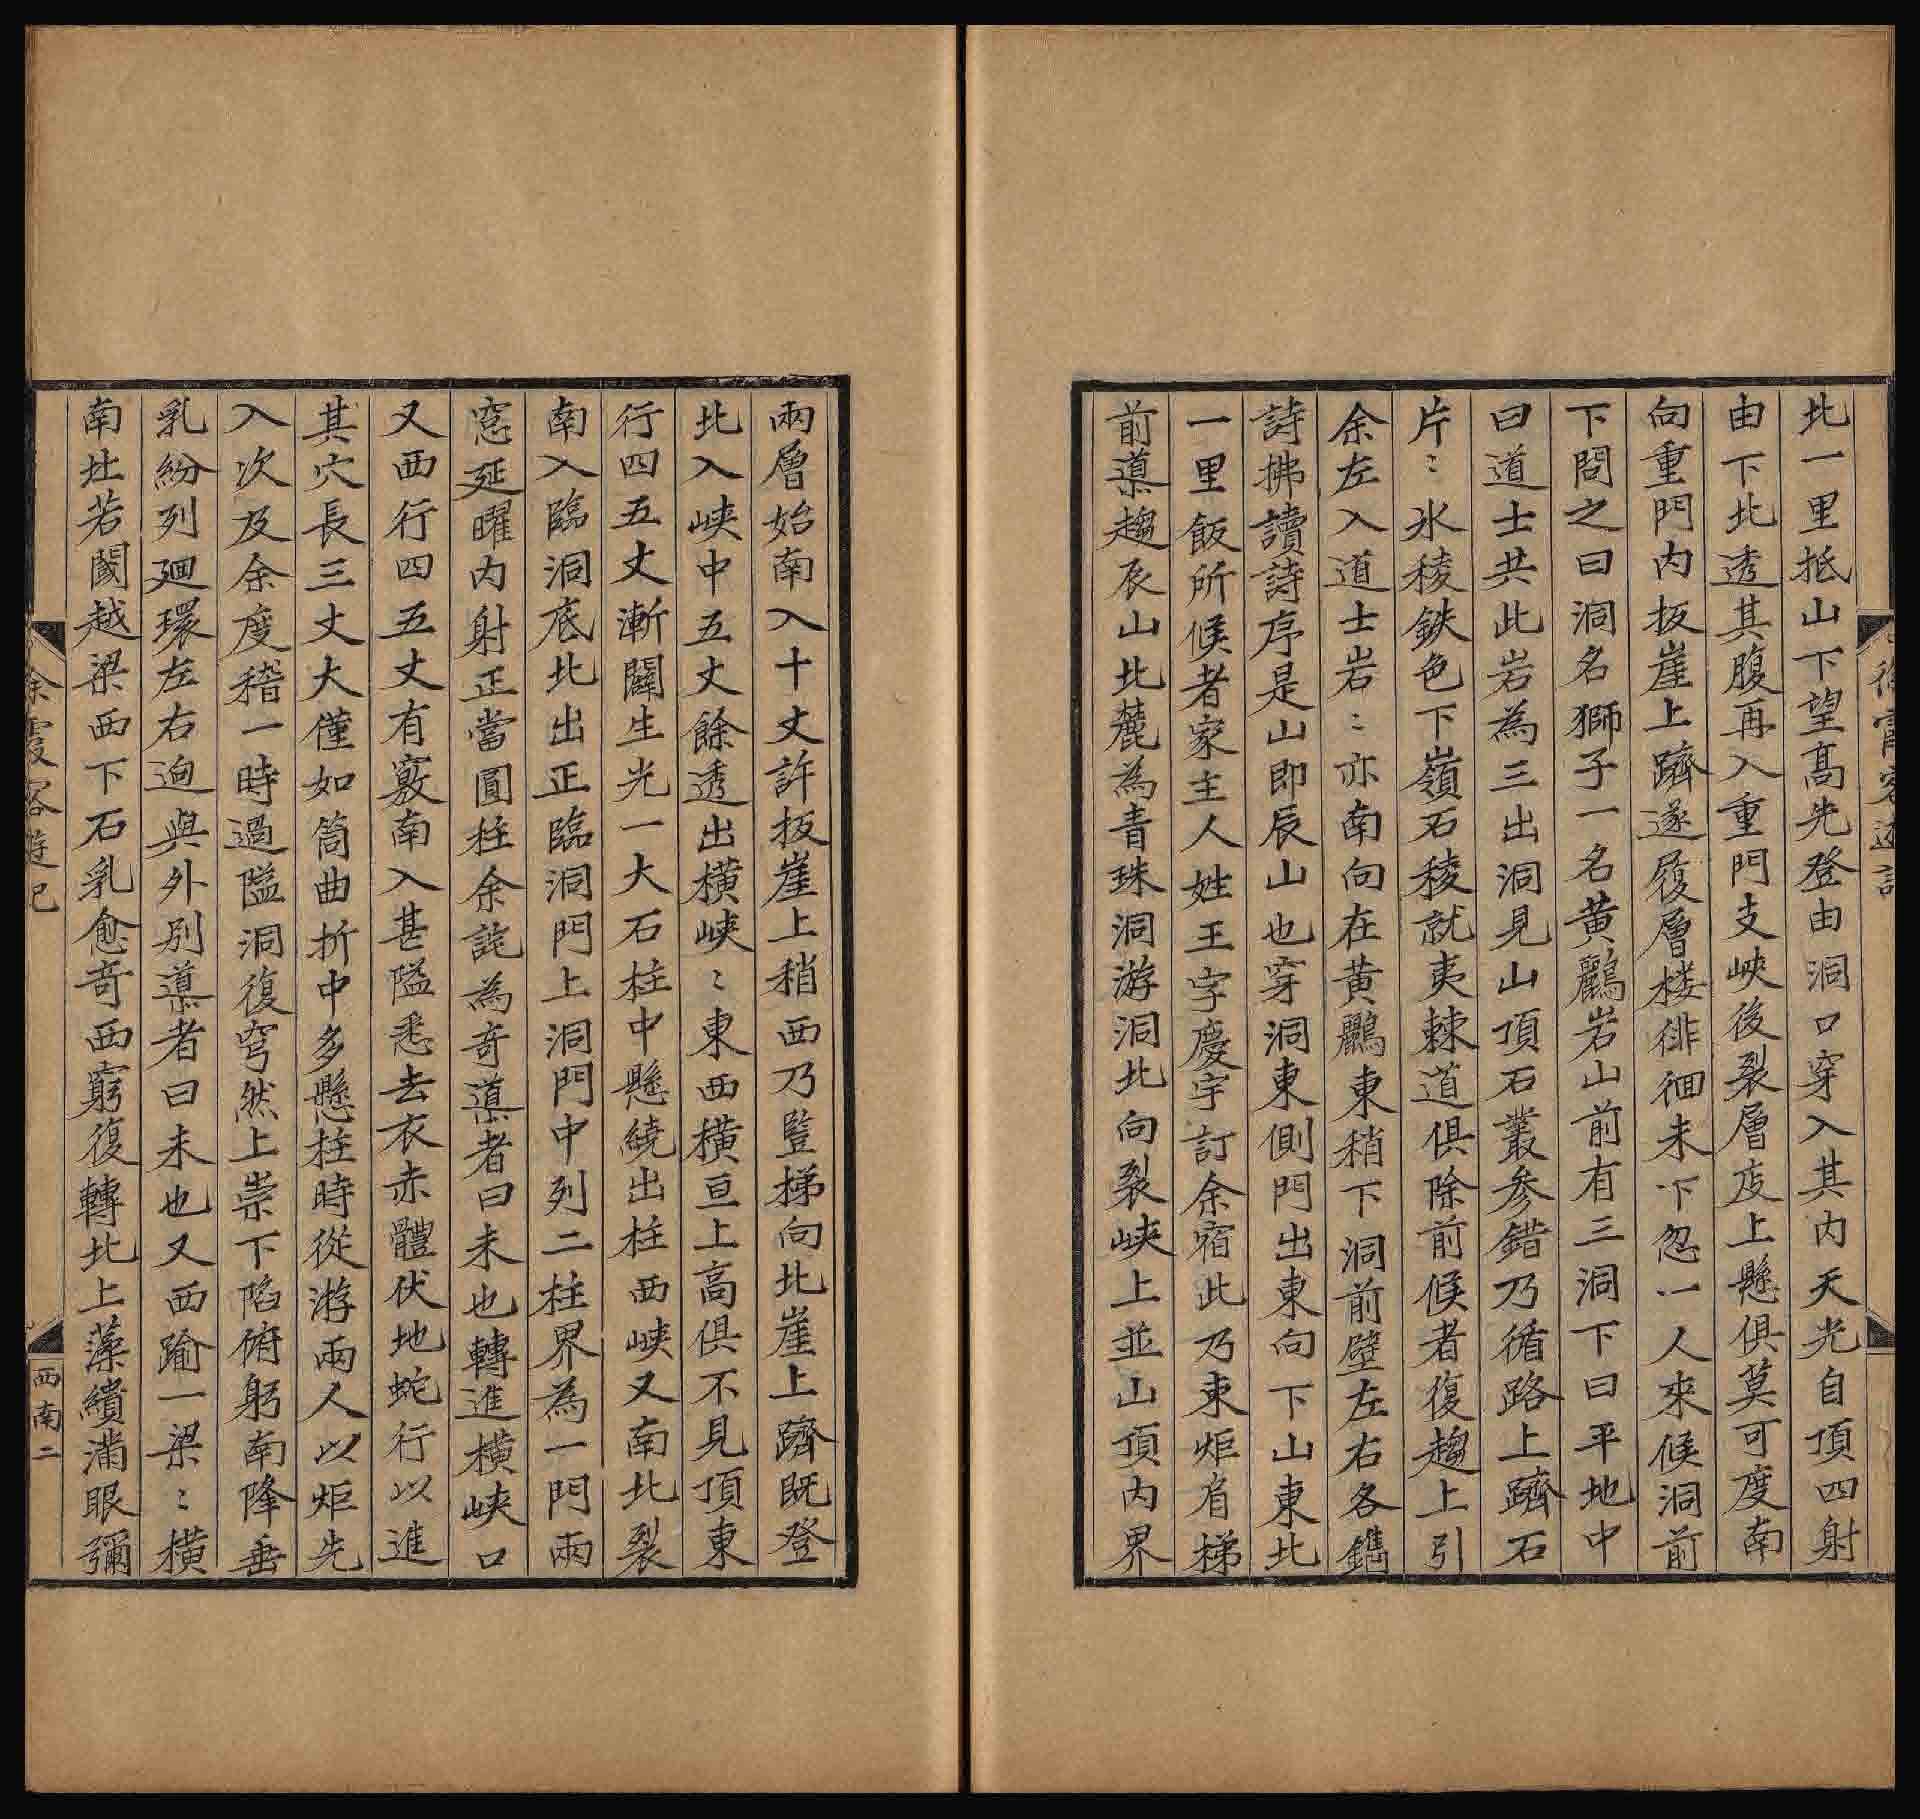 北一里抵山下望高先登由洞口穿入其内天光自頂四射
由下北透其腹再入重門支峽後裂層庋上懸俱莫可度南
向重門内扳崖上躋遂履層楼徘徊未下忽一人來候洞前
下問之曰洞名獅子一名黄鸝岩山前有三洞下曰平地中
曰道士共此岩為三出洞見山頂石叢参錯乃循路上躋石
片〻氷稜鉄色下嶺石稜就夷棘道俱除前候者復趨上引
余左入道士岩〻亦南向在黄鸝東稍下洞前壁左右各鐫
詩拂讀詩序是山即辰山也穿洞東側門出東向下山東北
一里飯所候者家主人姓王字慶宇訂余宿此乃束炬肩梯
前導趨辰山北麓為青珠洞游洞北向裂峽上並山頂内界
兩層始南入十丈許扳崖上稍西乃竪梯向北崖上躋既登
北入峽中五丈餘透出横峽〻東西横亘上高俱不見頂東
行四五丈漸闢生光一大石柱中懸繞出柱西峽又南北裂
南入臨洞底北出正臨洞門上洞門中列二柱界為一門兩
窓延曜内射正當圓柱余詫為奇導者曰未也轉進横峽口
又西行四五丈有竅南入甚隘悉去衣赤體伏地蛇行以進
其穴長三丈大僅如筒曲折中多懸柱時從游兩人以炬先
入次及余度稽一時過隘洞復穹然上崇下陷俯躬南降垂
乳紛列廻環左右迴與外别導者曰未也又西踰一梁〻横
南北若閾越梁西下石乳愈奇西窮復轉北上藻繢滿眼彌
徐霞客遊記
西南二